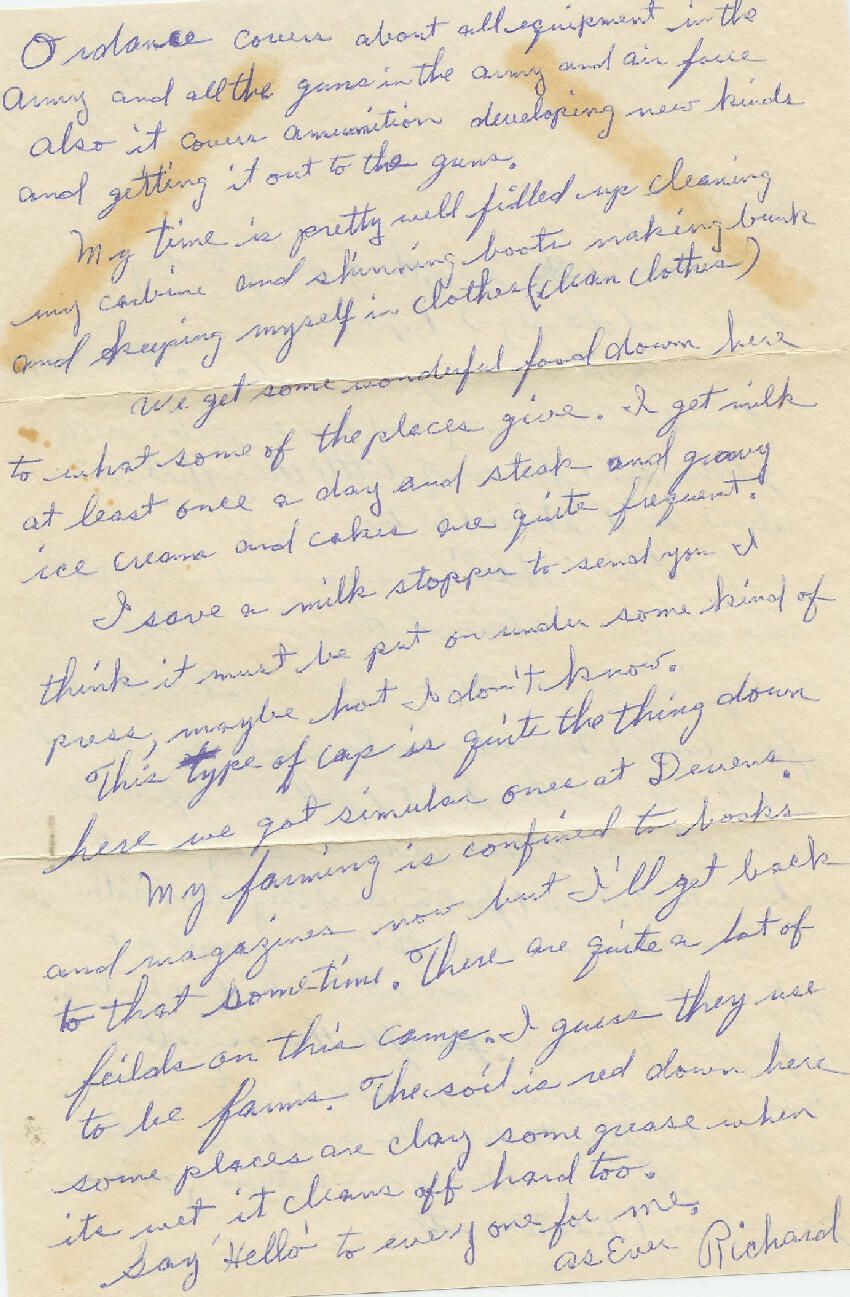 Ordance covers about all equipment in the
Army and all the guns in the army and air force
also it covers amunition developing new kinds
and getting it out to the guns.
My time is pretty well filled up cleaning
my carbine and shinning boots making bunk
and keeping myself in clothes (clean clothes)
We get some wonderful food down here
to what some of the places give. I get milk
at least once a day and steak and gravy
ice cream and cakes are quite frequent.
I save a milk stopper to send you I
think it must be put on under some kind of
press, maybe hot I don't know.
This type of cap is quite the thing down
here we got simular ones at Devens.
My farming is confined to books
and magazines now but I'll get back
to that sometime. There are quite a lot of
feilds on this camp. I guess they use
to be farms. The soil is red down here
some places are clay some grease when
its wet it cleans off hard too.
Say 'Hello' to every one for me.
as Ever Richard